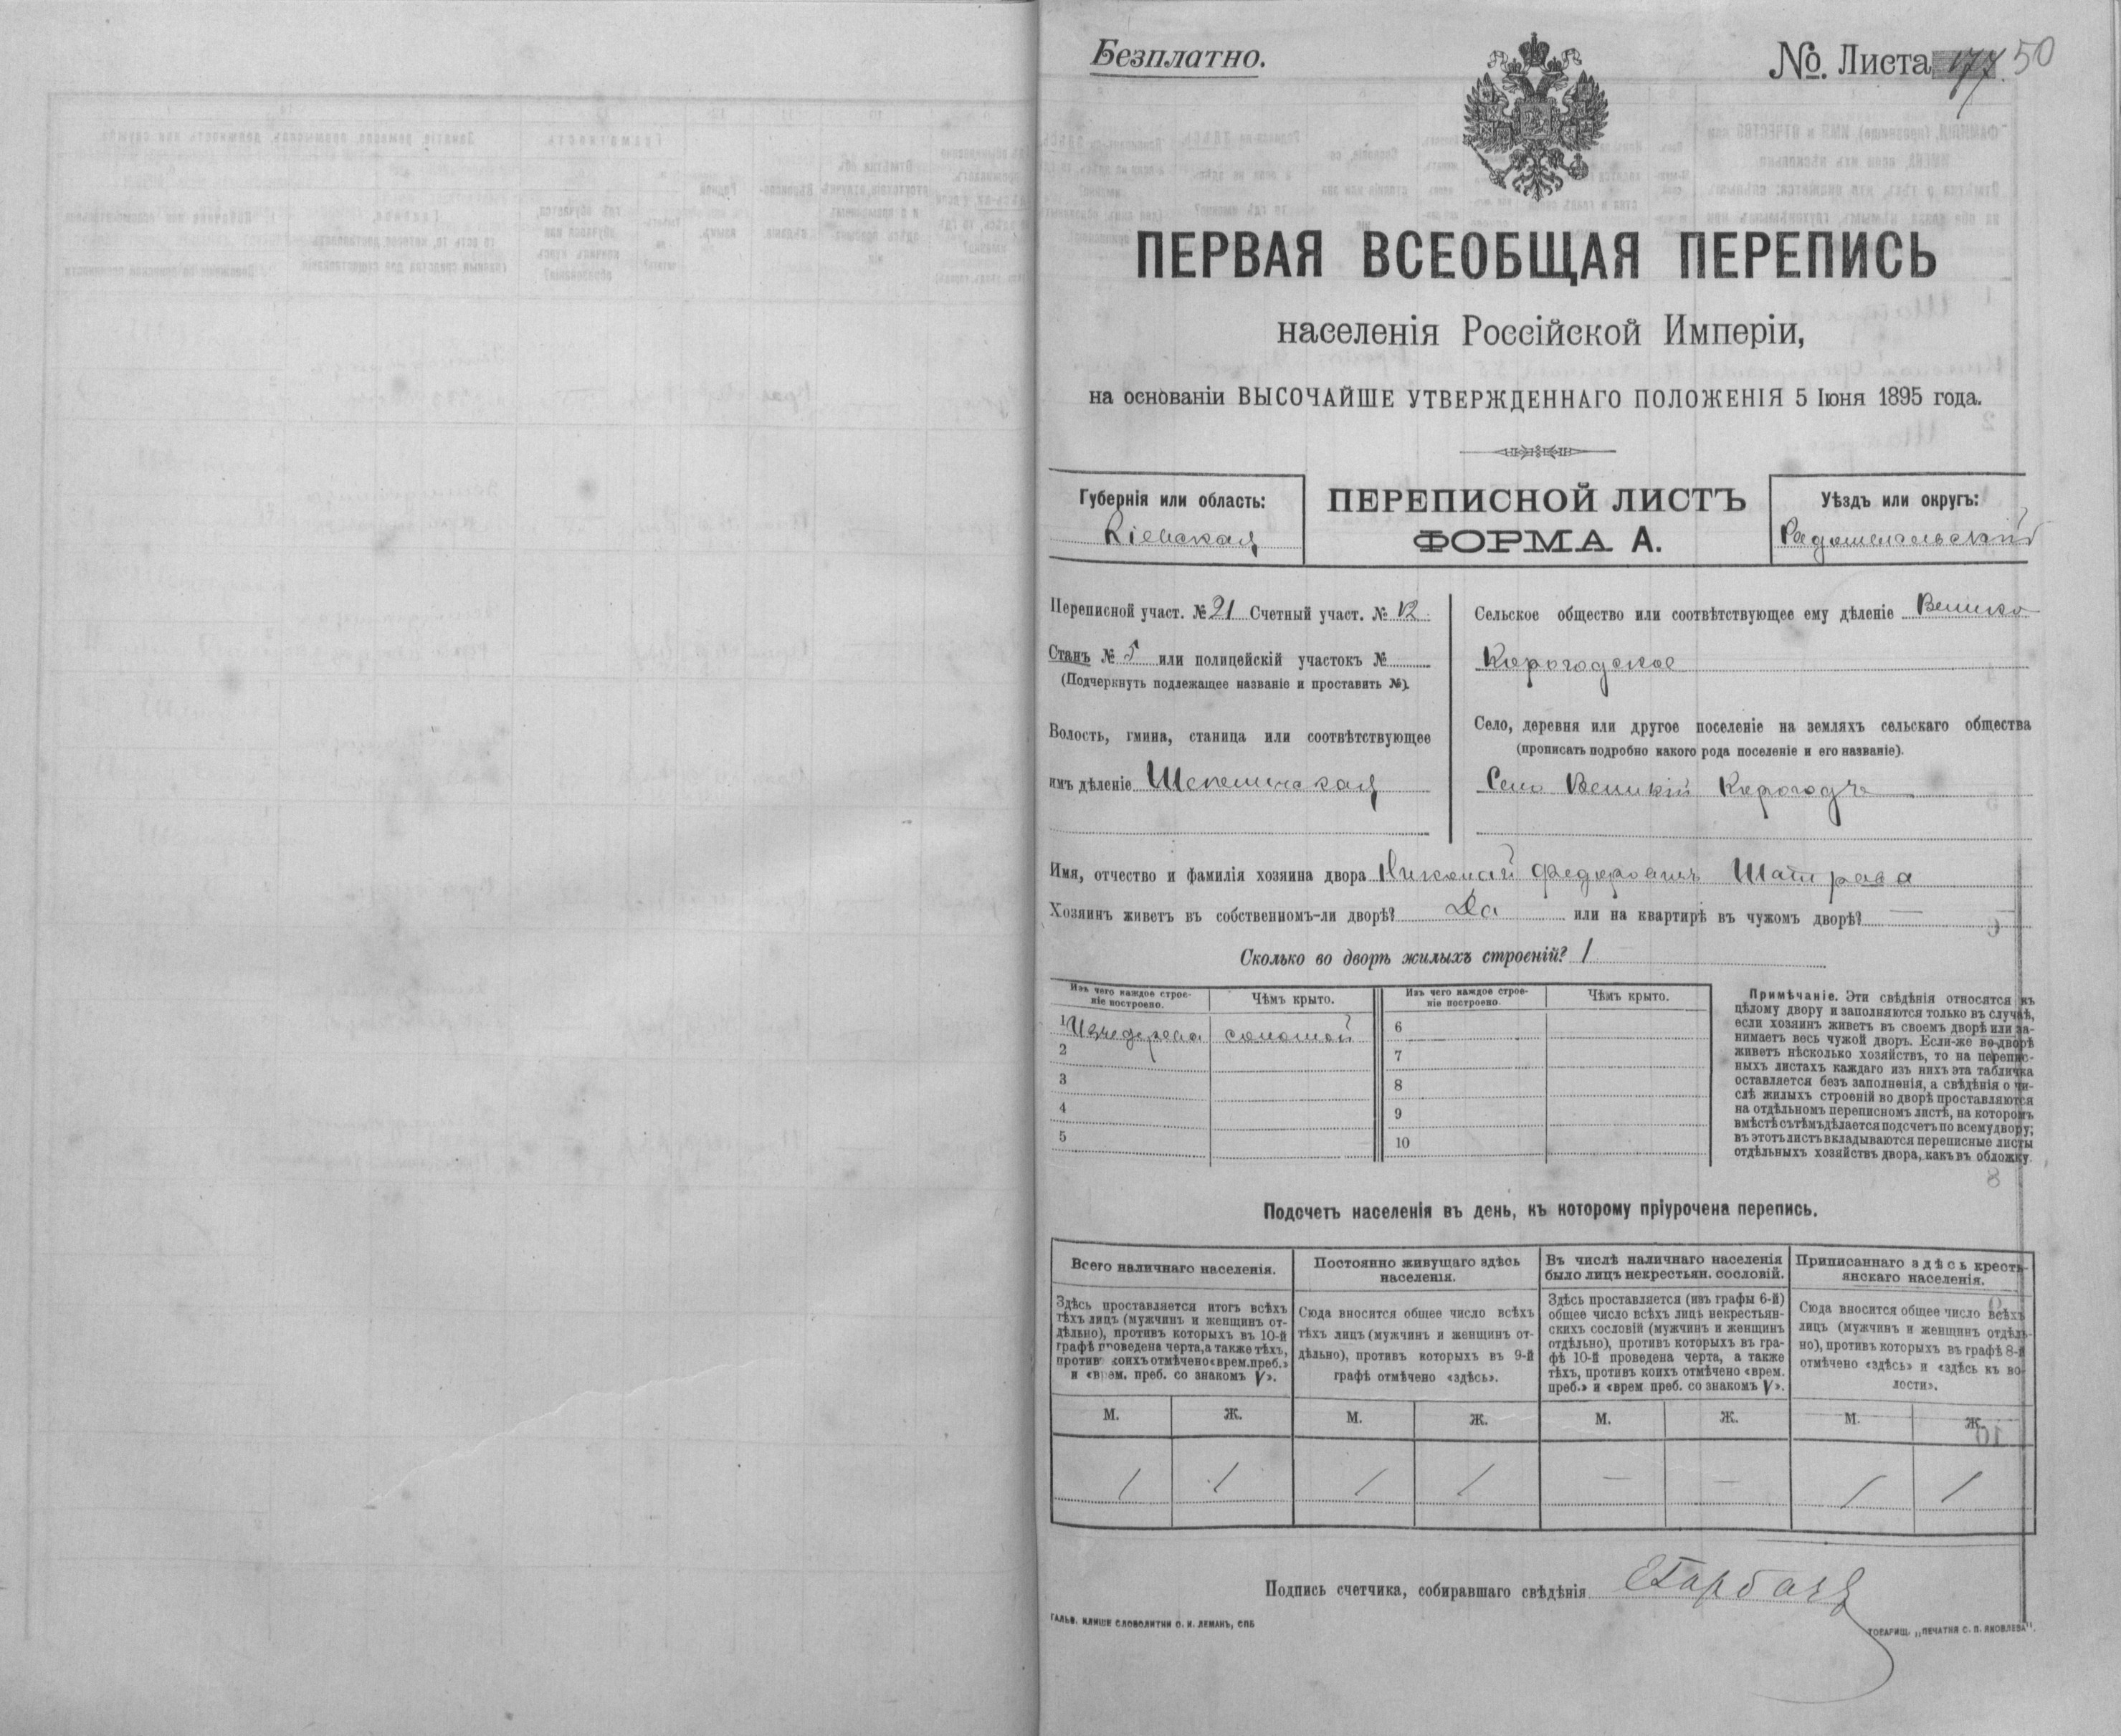 Безплатно.
№. Листа 177. 50
ПЕРВАЯ ВСЕОБЩАЯ ПЕРЕПИСЬ
населенія Россійской Имперіи,
на основаніи ВЫСОЧАЙШЕ УТВЕРЖДЕННАГО ПОЛОЖЕНІЯ 5 Іюня 1895 года.
Губернія или область:
Кіевская
ПЕРЕПИСНОЙ ЛИСТЪ
ФОРМА А.
Уѣздъ или округъ:
Радомысльскій
Переписной участ. № 21 Счетный участ. № 12
Станъ № 5 или полицейскій участокъ №
(Подчеркнуть подлежащее названіе и проставить №).
Волость, гмина, станица или соотвѣтствующее
имъ дѣленіе Шепеличская
Сельское общество или соотвѣтствующее ему дѣленіе Велико
Корогодское
Село, деревня или другое поселеніе на земляхъ сельскаго общества
(прописать подробно какого рода поселеніе и его названіе).
Село Великій Корогодъ
Имя, отчество и фамилія хозяина двора Николай Федоровичъ
Хозяинъ живетъ въ собственномъ-ли дворѣ? Да или на квартирѣ въ чужомъ дворѣ? —
Сколько во дворѣ жилыхъ строеній? 1
Изъ чего каждое строе-
ніе построено.
Чѣмъ крыто.
Изъ чего каждое строе-
ніе построено.
Чѣмъ крыто.
1 Изъ дерева соломой
2
3
4
5
6
7
8
9
10
Примѣчаніе. Эти свѣдѣнія относятся къ
цѣлому двору и заполняются только въ случаѣ,
если хозяинъ живетъ въ своемъ дворѣ или за-
нимаетъ весь чужой дворъ. Если-же во дворѣ
живетъ нѣсколько хозяйствъ, то на перепис-
ныхъ листахъ каждаго изъ нихъ эта табличка
оставляется безъ заполненія, а свѣдѣнія о чи-
слѣ жилыхъ строеній во дворѣ проставляются
на отдѣльномъ переписномъ листѣ, на которомъ
вмѣстѣ съ тѣмъ дѣлается подсчетъ по всему двору;
въ этотъ листъ вкладываются переписные листы
отдѣльныхъ хозяйствъ двора, какъ въ обложку.
Подсчетъ населенія въ день, къ которому пріурочена перепись.
Всего наличнаго населенія.
Здѣсь проставляется итогъ всѣхъ
тѣхъ лицъ (мужчинъ и женщинъ от-
дѣльно), противъ которыхъ въ 10-й
графѣ проведена черта, а также тѣхъ,
противъ коихъ отмѣчено «врем. преб.»
и «врем. преб. со знакомъ V».
Постоянно живущаго здѣсь
населенія.
Сюда вносится общее число всѣхъ
тѣхъ лицъ (мужчинъ и женщинъ от-
дѣльно), противъ которыхъ въ 9-й
графѣ отмѣчено «здѣсь».
Въ числѣ наличнаго населенія
было лицъ некрестьян. сословій.
Здѣсь проставляется (изъ графы 6-й)
общее число всѣхъ лицъ некрестьян-
скихъ сословій (мужчинъ и женщинъ
отдѣльно), противъ которыхъ въ гра-
фѣ 10-й проведена черта, а также
тѣхъ, противъ коихъ отмѣчено «врем.
преб.» и «врем преб. со знакомъ V».
Приписаннаго здѣсь кресть-
янскаго населенія.
Сюда вносится общее число всѣхъ
лицъ (мужчинъ и женщинъ отдѣль-
но), противъ которыхъ въ графѣ 8-й
отмѣчено «здѣсь» и «здѣсь къ во-
лости».
М. Ж. М. Ж. М. Ж. М. Ж.
1 1 1 1 — — 1 1
Подпись счетчика, собиравшаго свѣдѣнія
ГАЛЬВ. КЛИШЕ СЛОВОЛИТНИ О. И. ЛЕМАНЪ, СПБ
ТОВАРИЩ. „ПЕЧАТНЯ С. П. ЯКОВЛЕВА".